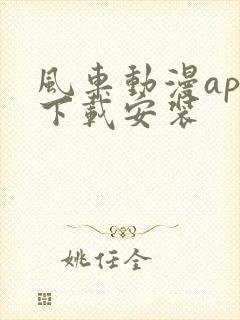 風車動漫ap
下載安裝
姚任全